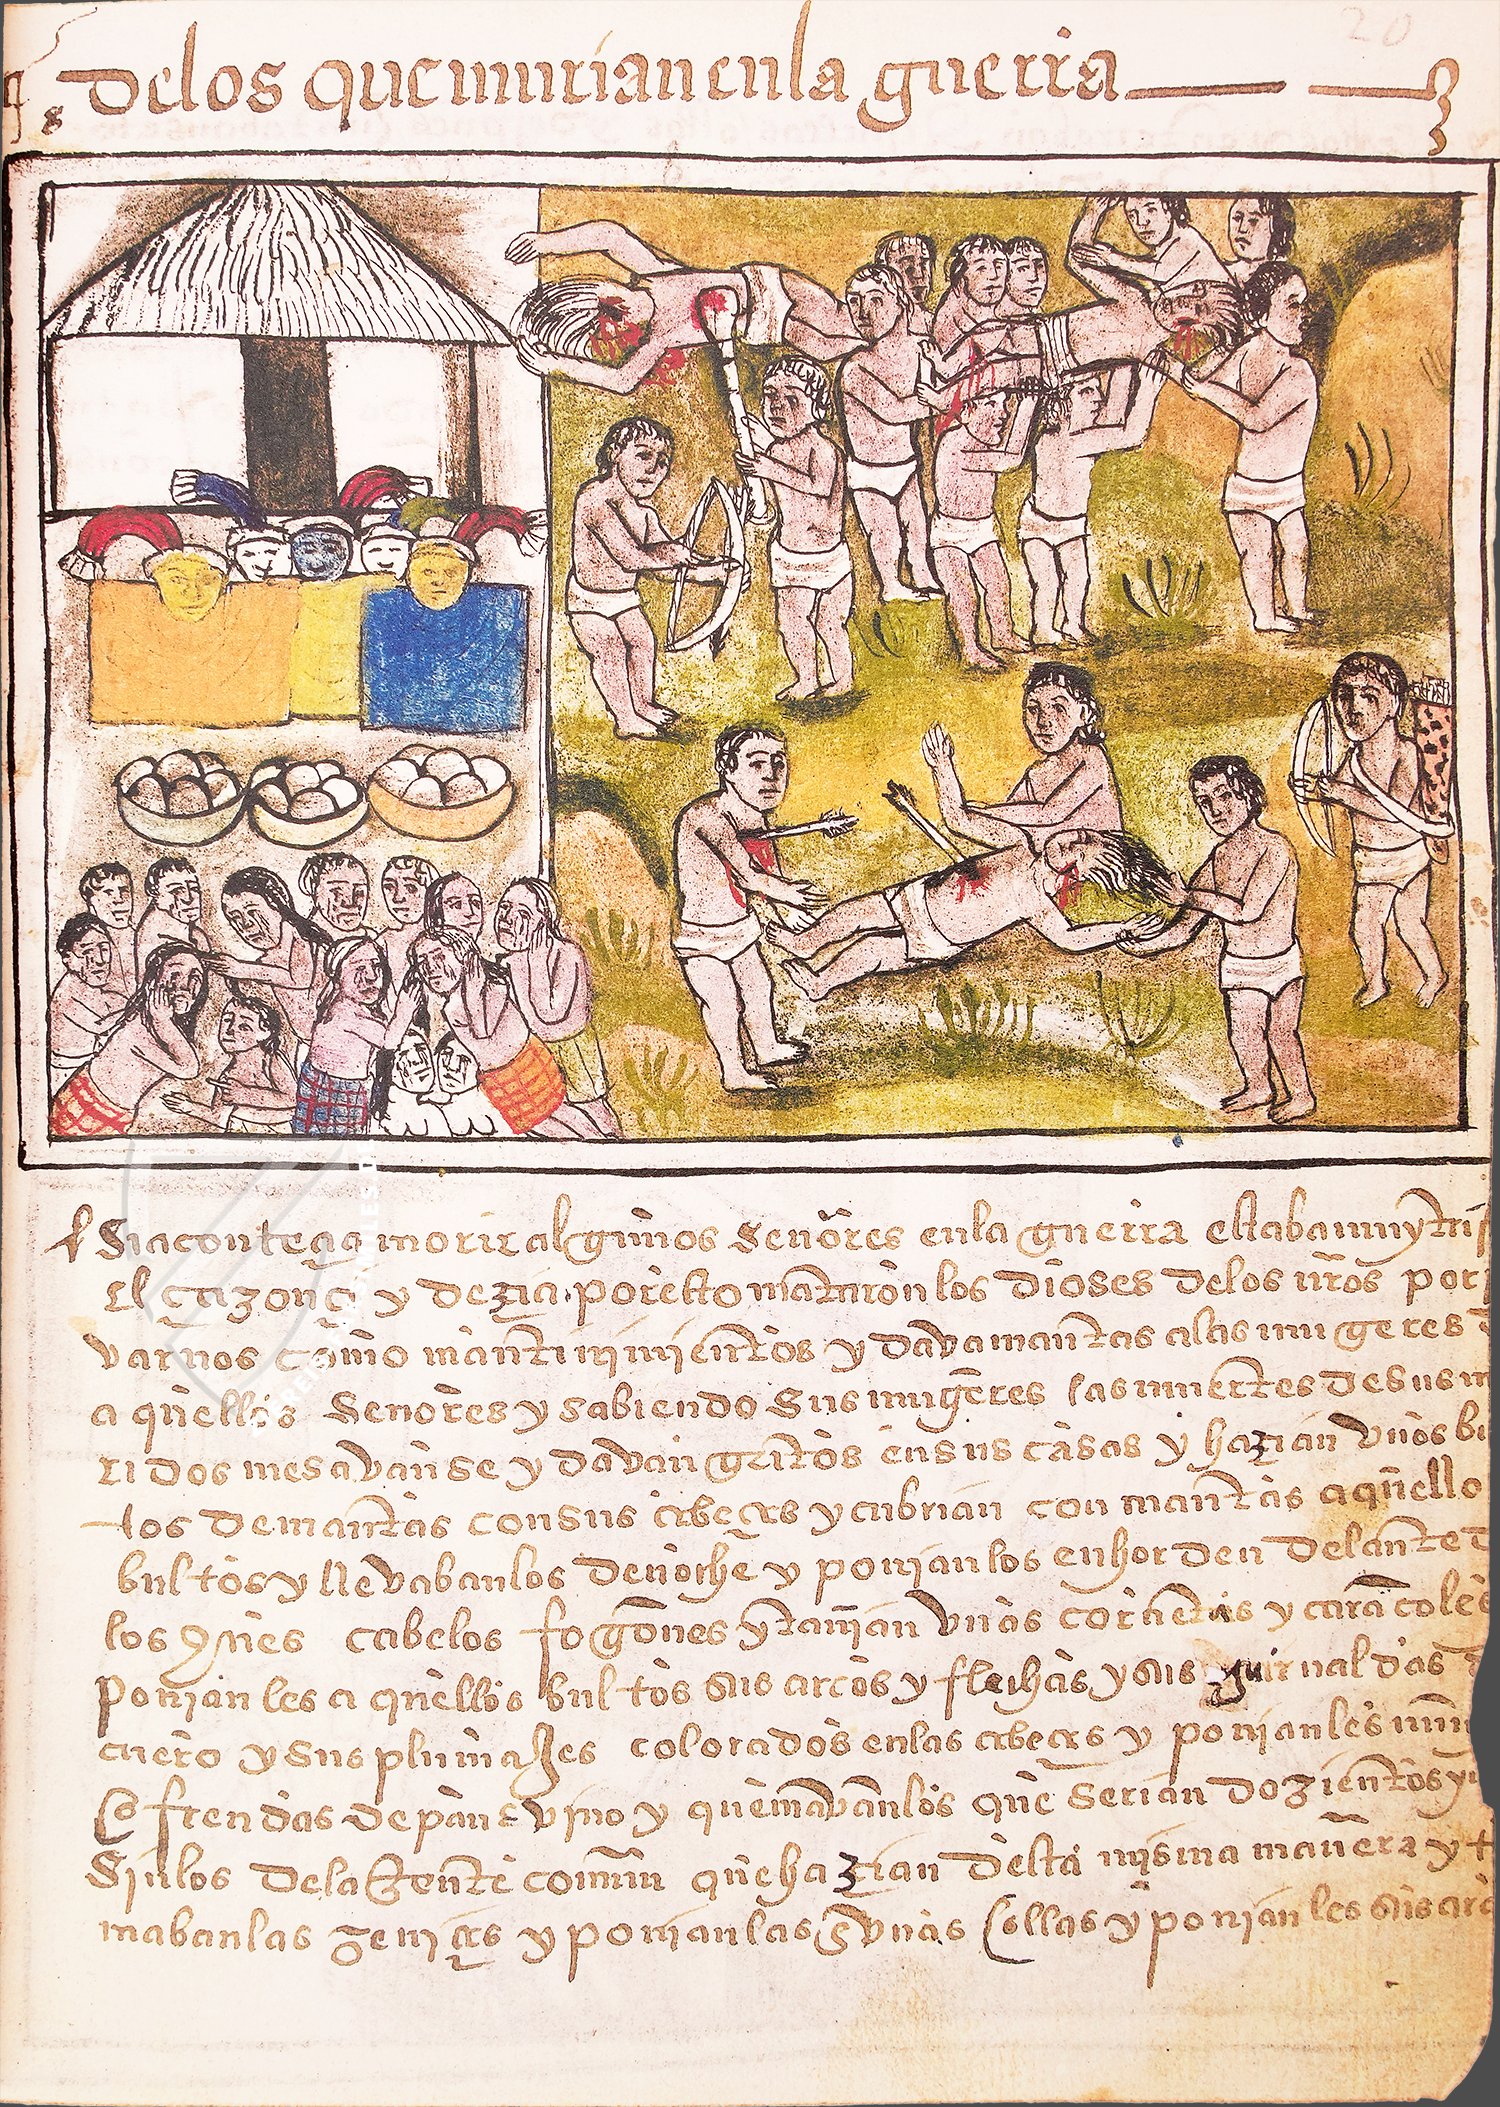 20
8 delos que murian en la guerra
Si aconteça morir algunos Señores en la guerra estaba muy tris
El caçonçi y dezia por esto mataron los dioses delos nr̃os por
varnos como mantinimientos y dava mantas alas mugeres
a quellos Señores y sabiendo Sus mugeres las muertes de sus m
ridos mesavanse y davan gritos en sus casas y hazian unos bu
tos de mantas con sus cabeças y cubrian con mantas aq̃ello
bultos y llevabanlos de noche y ponian los enhorden delante d
los q̃nes cabe los fogones y tañian unas cornetas y caracoles
ponian les a quellos bultos sus arcos y flechas y sus guirnaldas d
cuero y sus plumages colorados en las cabeças y ponian les
ofrendas de pan e vino y quemavanlos que serian dozientos y
Sin los dela gente comun que hazian desta misma manera y t
maban las çeniças y ponian las en unas ollas y ponian les sus arc